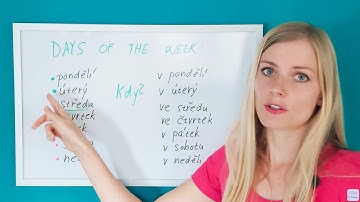 DAYS OF THE WEEK
pondělí
úterý
středa
čtvrtek
Když
v pondělí
v úterý
ve středu
ve čtvrtek
v pátek
v sobotu
v neděli